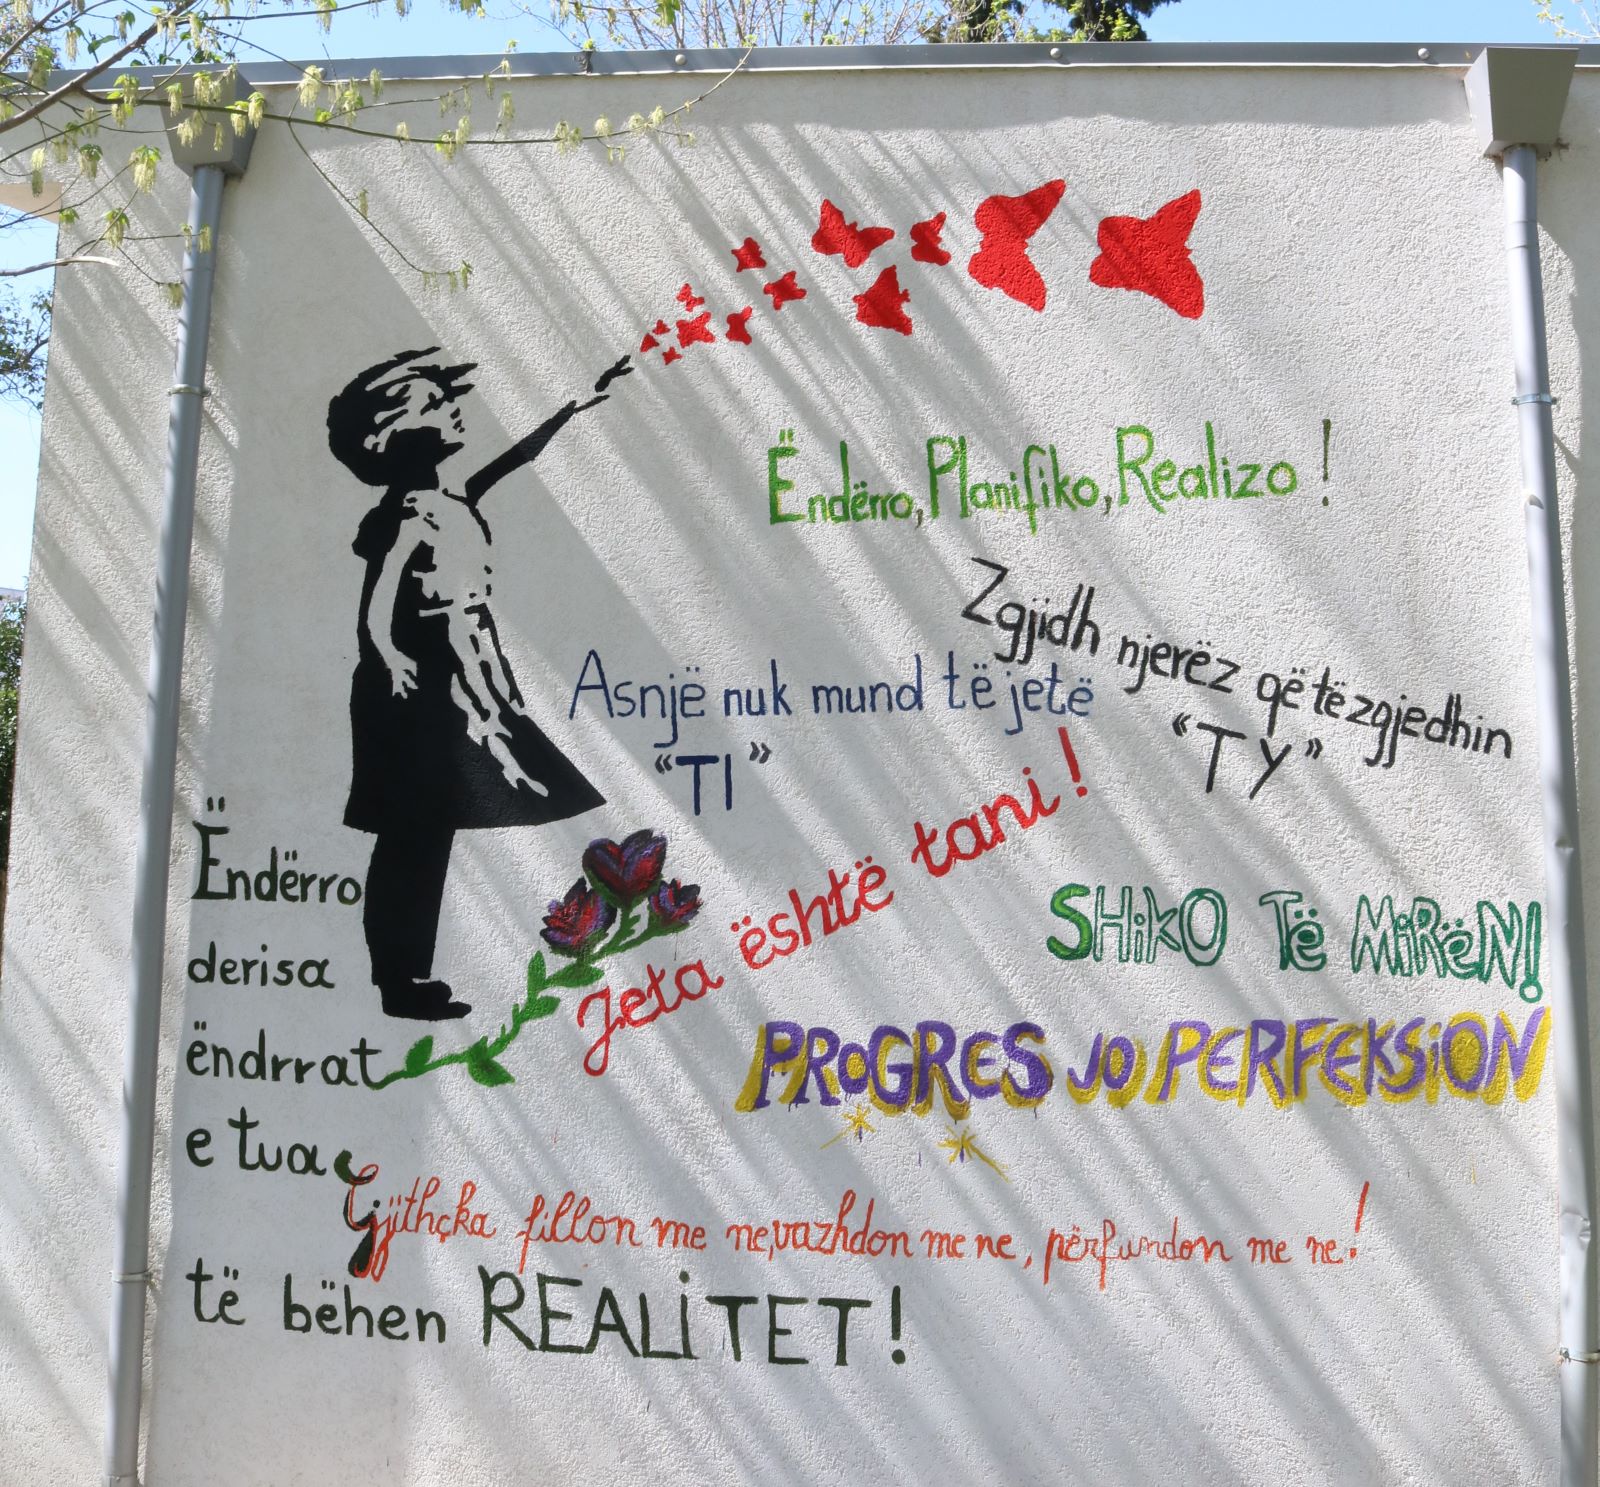 Ëndërro, Planifiko, Realizo !
Zgjidh njerëz që të zgjedhin
“TY”
Asnjë nuk mund të jetë
“TI”
Jeta është tani !
SHiKO Të MiRëN!
PROGRES JO PERFEKSiON
Ëndërro
derisa
ëndrrat
e tua
të bëhen REALiTET !
Gjithçka fillon me ne, vazhdon me ne, përfundon me ne !